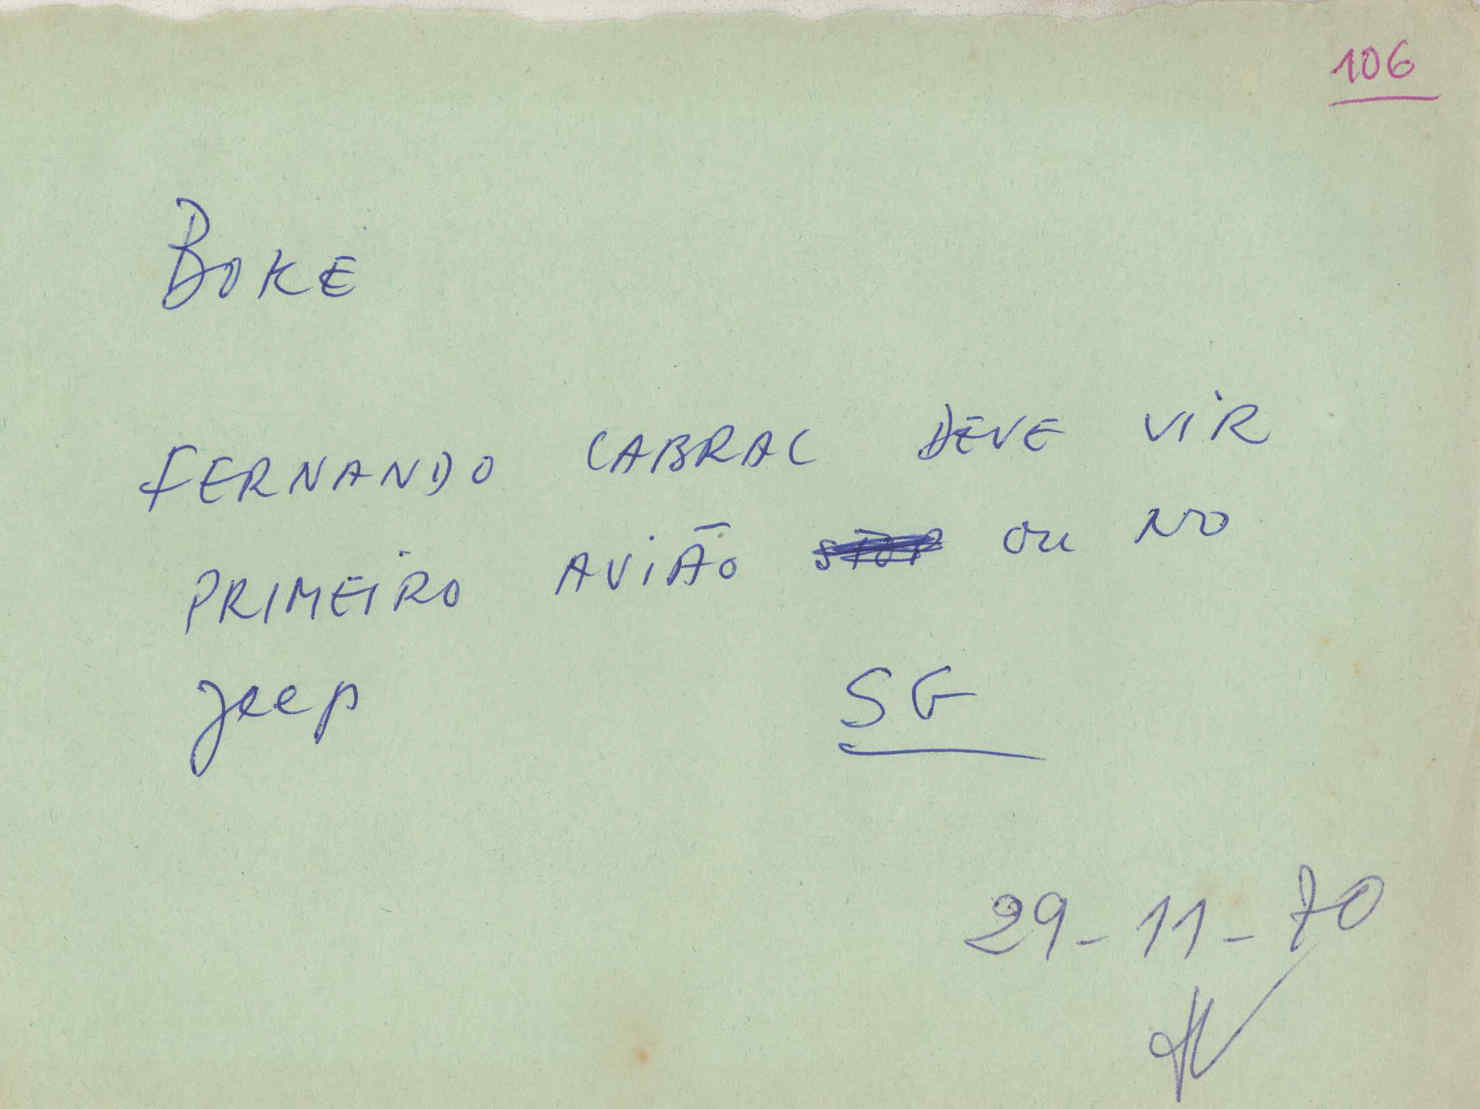 106
BOKE
FERNANDO CABRAL DEVE VIR
PRIMEIRO AVIÃO STOP OU NO
jeep SG
29-11-70